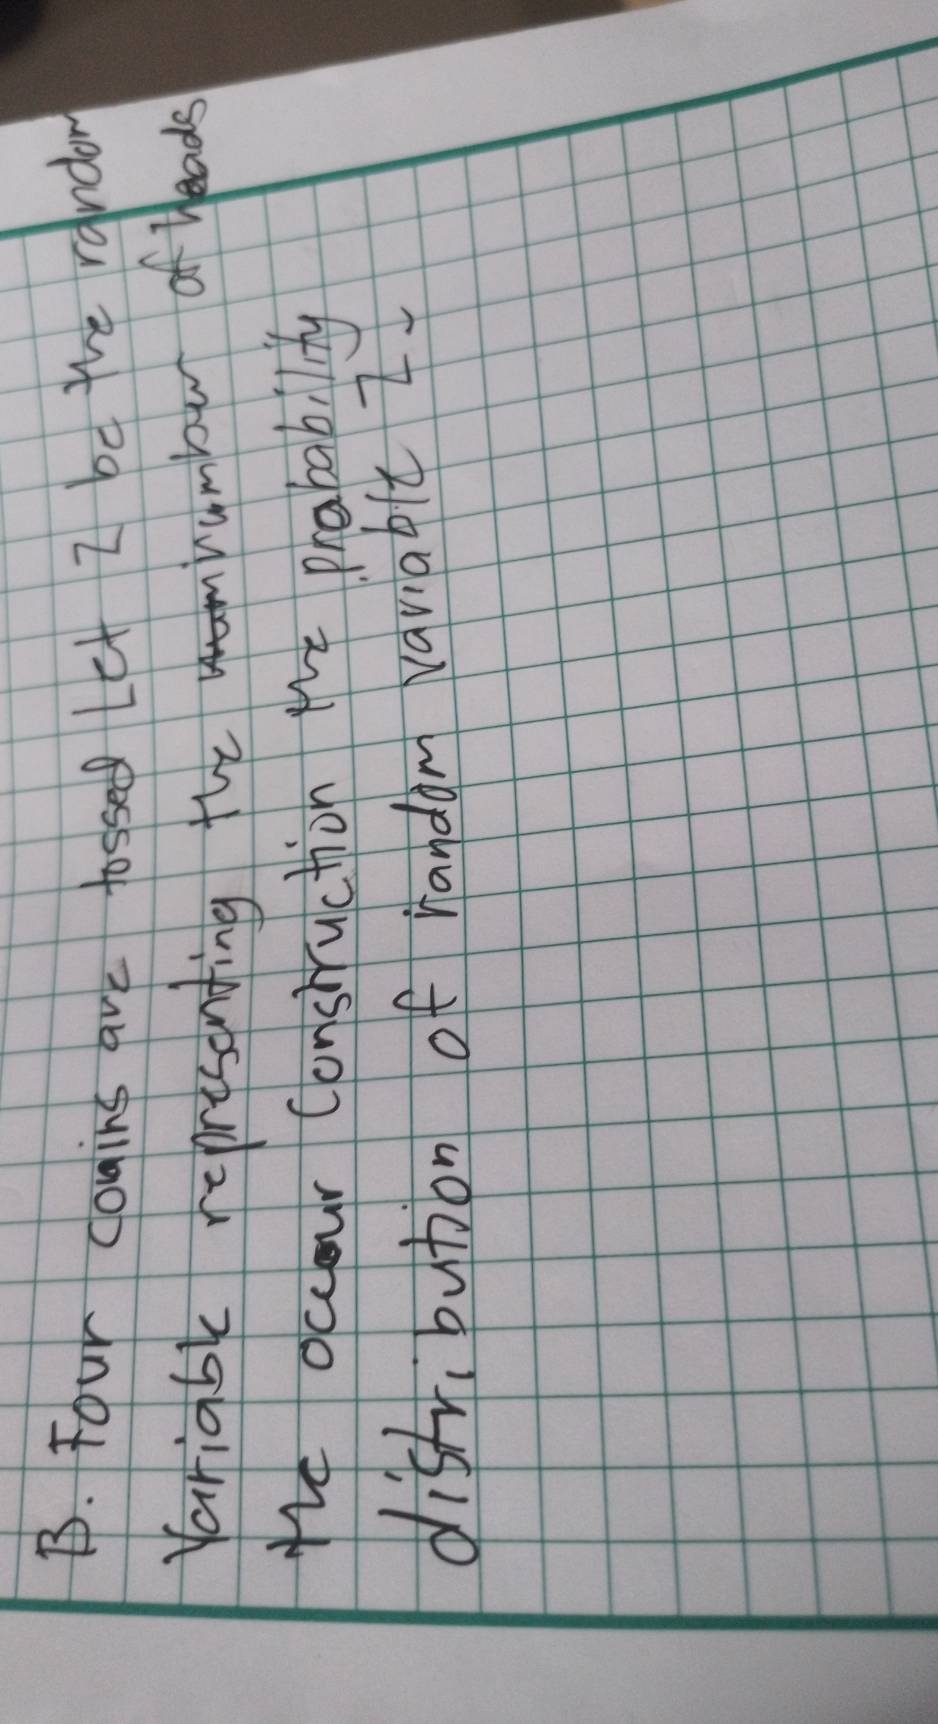 B. Four coins are tossed Let Z be the random
Variable representing the number of heads
the occur Construction the probability
distribution of random variable Z.